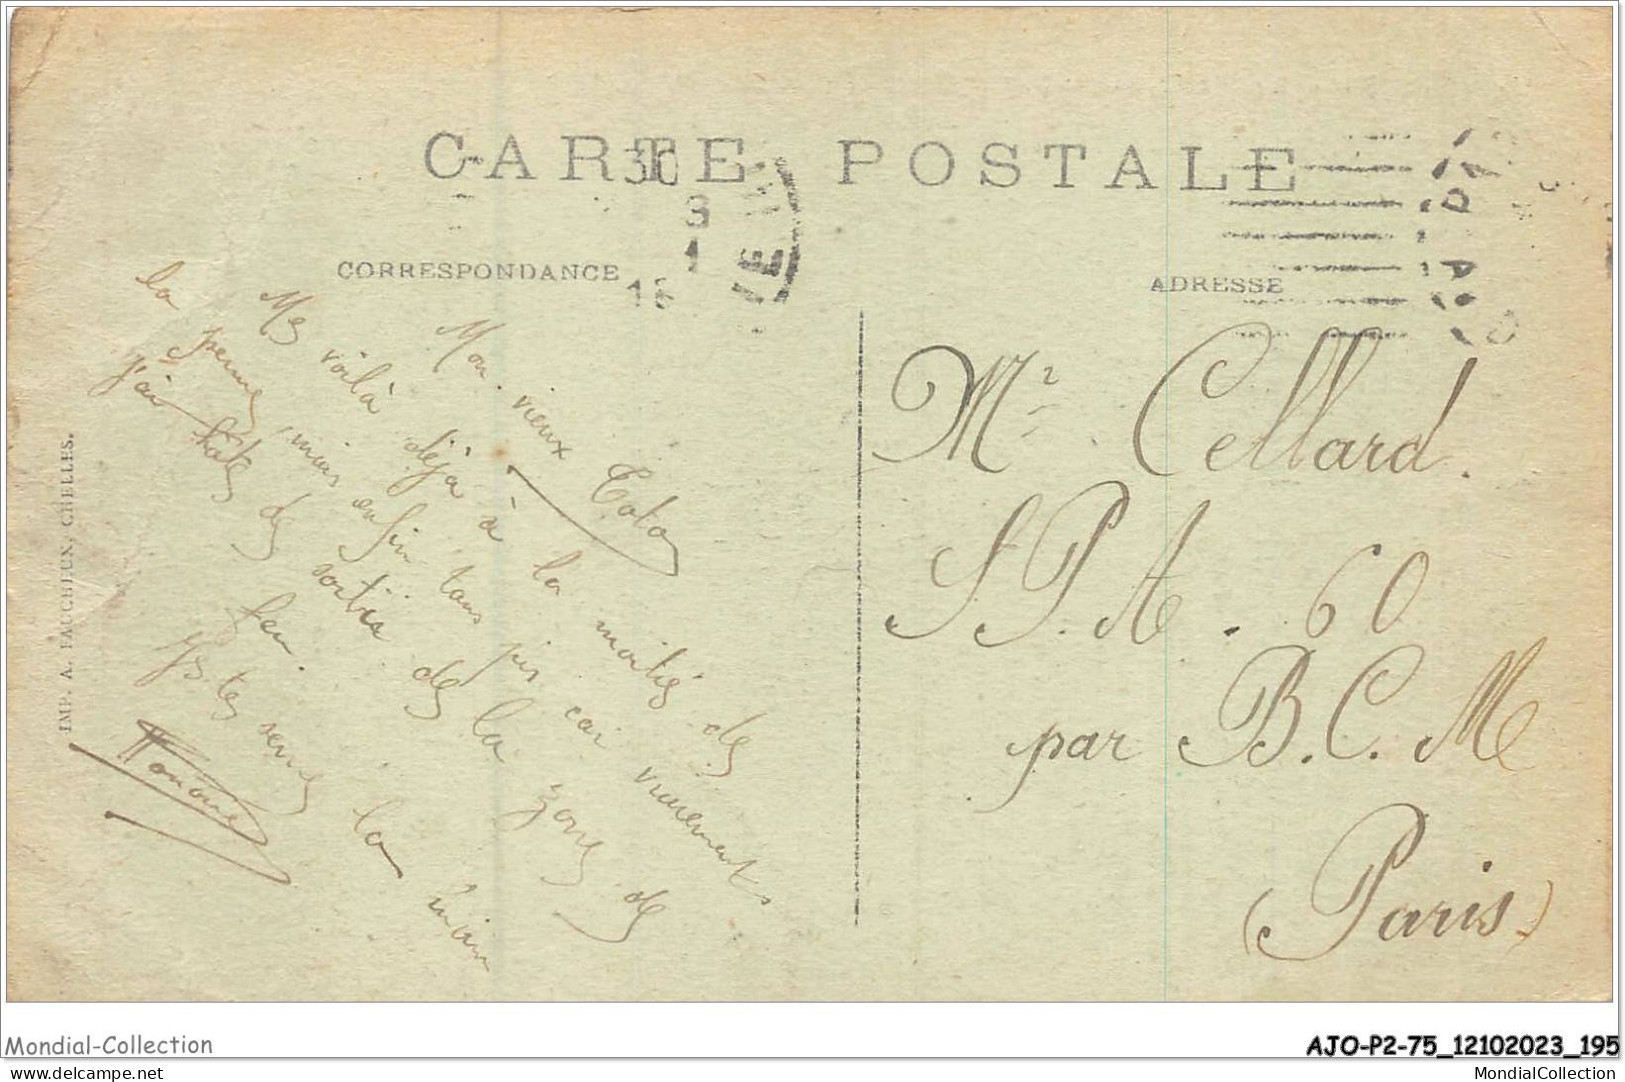 CARTE POSTALE
30
3
1
15
CORRESPONDANCE
ADRESSE
Mon vieux Toto
Me voilà déjà à la moitié de
la perme, mais enfin tans pis car vraiment
j'ai hâte de sortir de la zone de
feu.
Je te serre la main
Mr Cellard.
S.P.A. 60
par B.C.M
(Paris)
IMP. A. FAUCHEUX, CHELLES.
Mondial-Collection
AJO-P2-75_12102023_195
delcampe.net
MondialCollection